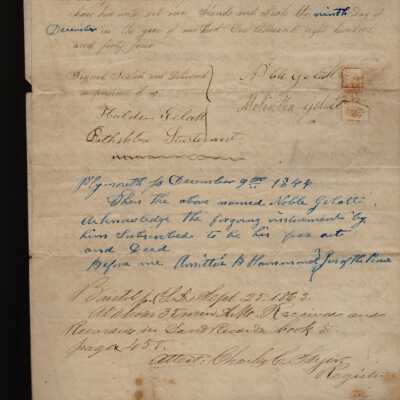 have hereunto set our hands and seals the ninth day of
December in the year of our Lord One thousand eight hundred
and forty four
Signed Sealed and Delivered
in presence of us
Noble Gelatt
Melintha Gelatt
Halden Gelatt
Bathsheba Sturtevant
Plymouth ss December 9th 1844
Then the above named Noble Gelatt
Acknowledge the forgoing instrument by
him Subscribed to be his free act
and Deed
Before me B Hammond Jus of the Peace
Bristol ss. Sept. 25. 1863.
At 35 min A.M. Received and
Recorded in Land Records book
page 451.
Attest: Charles C.
Register